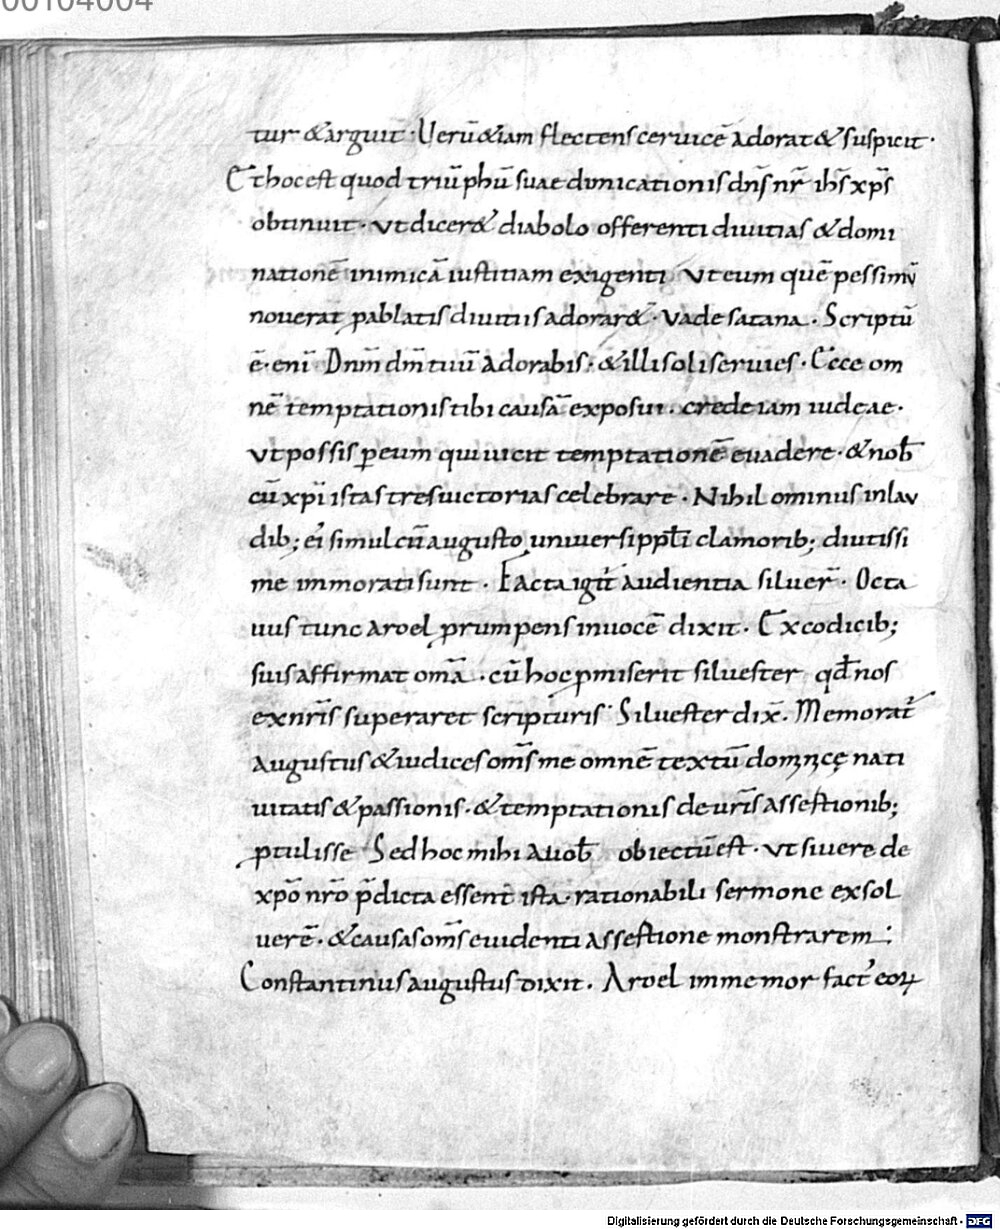 00104004
tur & arguit · Uerū & iam flectens ceruicē adorat & suspicit ·
Et hoc est quod triūphū suae dimicationis dn̄s nr̄ ihs̄ xp̄s
obtinuit · ut dicer& diabolo offerenti diuitias & domi
nationē inimicā iustitiam exigenti Ut eum quē pessimū
nouerat ꝓ ablatis diuitiis adorar& · Vade satana · Scriptū
ē · enī Dnm̄ dm̄ tuū adorabis · & illi soli seruies · Ecce om
nē temptationis tibi causā exposui · crede iam iudęae ·
ut possis ꝑ eum qui uicit temptationē euadere · & nob̄
cū xpī istas tres uictorias celebrare · Nihilominus in lau
dib; eī simul cū augusto uniuersi ppl̄i clamorib; diutissi
me immorati sunt · Facta igit̄ audientia siluer̄ · Octa
uus tunc aroel ꝓrumpens in uocē dixit · Ex codicib;
suis affirmat om̄a · cū hoc ꝓmiserit siluester qd̄ nos
ex nr̄is superaret scripturis · Siluester dix̄ · Memorat̄
augustus & iudices om̄s me omnē textū dominicę nati
uitatis & passionis · & temptationis de ur̄is assertionib;
ꝓtulisse Sed hoc mihi a uob̄ obiectū est · ut si uere de
xpō nrō p̄dicta essent ista · rationabili sermone exsol
uerē · & causas om̄s euidenti assertione monstrarem ;
Constantinus augustus dixit · Aroel immemor fact' eoꝝ
Digitalisierung gefördert durch die Deutsche Forschungsgemeinschaft · DFG